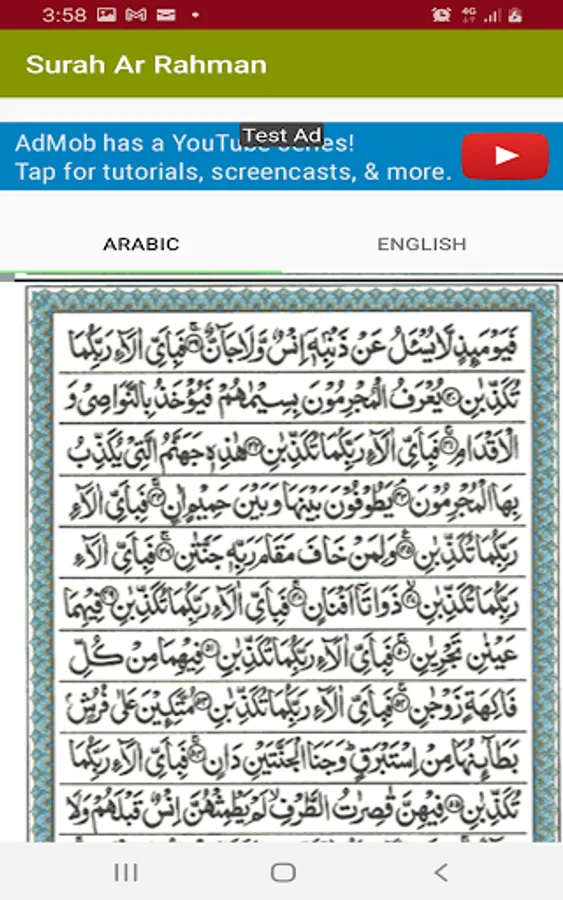 3:58
4G
Surah Ar Rahman
Test Ad
AdMob has a YouTube series!
Tap for tutorials, screencasts, & more.
ARABIC
ENGLISH
فَيَوْمَئِذٍ لَّا يُسْـَٔلُ عَنْ ذَنْۢبِهٖٓ اِنْسٌ وَّلَا جَآنٌّ ﴿٣٩﴾ فَبِاَيِّ اٰلَآءِ رَبِّكُمَا
تُكَذِّبٰنِ ﴿٤٠﴾ يُعْرَفُ الْمُجْرِمُوْنَ بِسِيْمٰهُمْ فَيُؤْخَذُ بِالنَّوَاصِيْ وَ
الْاَقْدَامِ ﴿٤١﴾ فَبِاَيِّ اٰلَآءِ رَبِّكُمَا تُكَذِّبٰنِ ﴿٤٢﴾ هٰذِهٖ جَهَنَّمُ الَّتِيْ يُكَذِّبُ
بِهَا الْمُجْرِمُوْنَ ﴿٤٣﴾ يَطُوْفُوْنَ بَيْنَهَا وَبَيْنَ حَمِيْمٍ اٰنٍ ﴿٤٤﴾ فَبِاَيِّ اٰلَآءِ
رَبِّكُمَا تُكَذِّبٰنِ ﴿٤٥﴾ وَلِمَنْ خَافَ مَقَامَ رَبِّهٖ جَنَّتٰنِ ﴿٤٦﴾ فَبِاَيِّ اٰلَآءِ
رَبِّكُمَا تُكَذِّبٰنِ ﴿٤٧﴾ ذَوَاتَآ اَفْنَانٍ ﴿٤٨﴾ فَبِاَيِّ اٰلَآءِ رَبِّكُمَا تُكَذِّبٰنِ ﴿٤٩﴾ فِيْهِمَا
عَيْنٰنِ تَجْرِيٰنِ ﴿٥٠﴾ فَبِاَيِّ اٰلَآءِ رَبِّكُمَا تُكَذِّبٰنِ ﴿٥١﴾ فِيْهِمَا مِنْ كُلِّ
فَاكِهَةٍ زَوْجٰنِ ﴿٥٢﴾ فَبِاَيِّ اٰلَآءِ رَبِّكُمَا تُكَذِّبٰنِ ﴿٥٣﴾ مُتَّكِـِٕيْنَ عَلٰى فُرُشٍۢ
بَطَآئِنُهَا مِنْ اِسْتَبْرَقٍ ؕ وَجَنَا الْجَنَّتَيْنِ دَانٍ ﴿٥٤﴾ فَبِاَيِّ اٰلَآءِ رَبِّكُمَا
تُكَذِّبٰنِ ﴿٥٥﴾ فِيْهِنَّ قٰصِرٰتُ الطَّرْفِ ۙ لَمْ يَطْمِثْهُنَّ اِنْسٌ قَبْلَهُمْ وَلَا